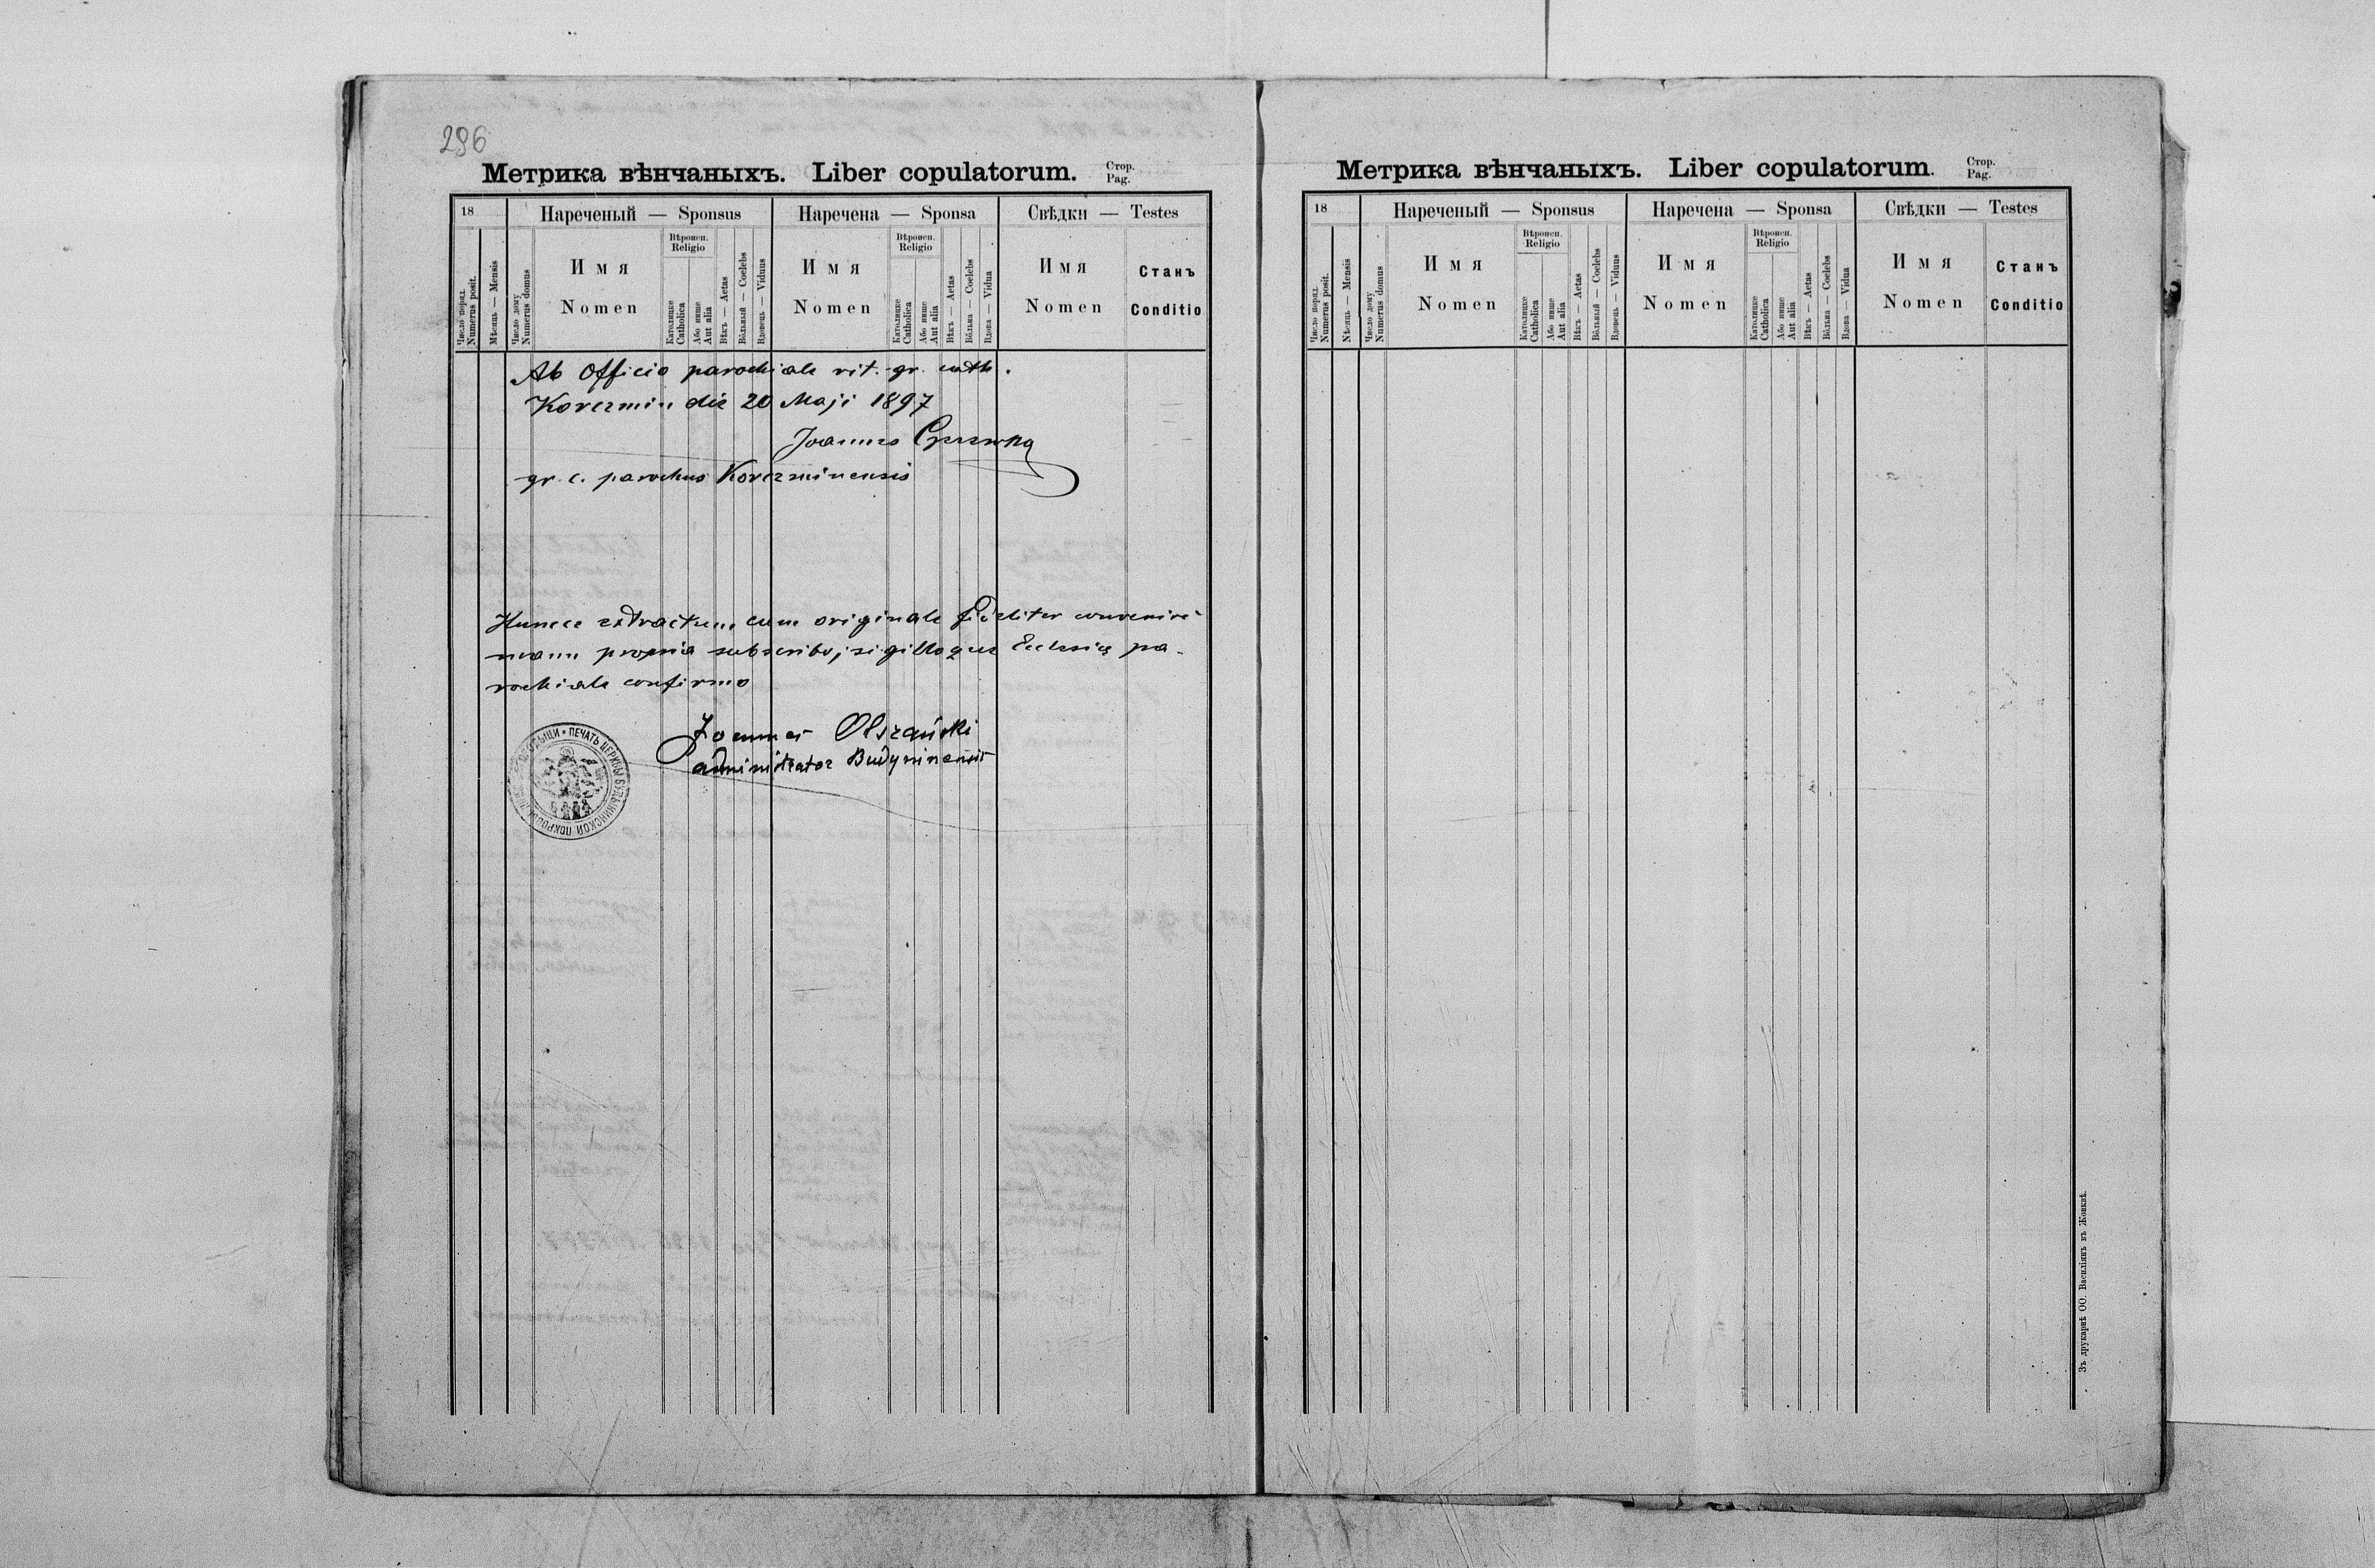 296
Метрика вѣнчаныхъ. Liber copulatorum. Стор. Pag.
18
Нареченый — Sponsus
Наречена — Sponsa
Свѣдки — Testes
Число поряд. Numerus posit.
Мѣсяць — Mensis
Число дому Numerus domus
Имя
Nomen
Вѣроисп.
Religio
Католицке Catholica
Або инше Aut alia
Вѣкъ — Aetas
Вôльный — Coelebs
Вдовець — Viduus
Имя
Nomen
Вѣроисп.
Religio
Католицке Catholica
Або инше Aut alia
Вѣкъ — Aetas
Вôльна — Coelebs
Вдова — Vidua
Имя
Nomen
Станъ
Conditio
Ab Officio parochiale rit. gr. cath.
die 20 Maji 1897
Joannes
gr. c. parochus
extractum cum originale fideliter convenire
manu propria subscribo, sigilloque Eclesiæ pa-
rochiale confirmo
Joannes Olszański
administrator
ПЕЧАТЬ ЦЕРКВИ
Метрика вѣнчаныхъ. Liber copulatorum. Стор. Pag.
18
Нареченый — Sponsus
Наречена — Sponsa
Свѣдки — Testes
Число поряд. Numerus posit.
Мѣсяць — Mensis
Число дому Numerus domus
Имя
Nomen
Вѣроисп.
Religio
Католицке Catholica
Або инше Aut alia
Вѣкъ — Aetas
Вôльный — Coelebs
Вдовець — Viduus
Имя
Nomen
Вѣроисп.
Religio
Католицке Catholica
Або инше Aut alia
Вѣкъ — Aetas
Вôльна — Coelebs
Вдова — Vidua
Имя
Nomen
Станъ
Conditio
Зъ друкарнѣ ОО. Василіянъ въ Жовквѣ.